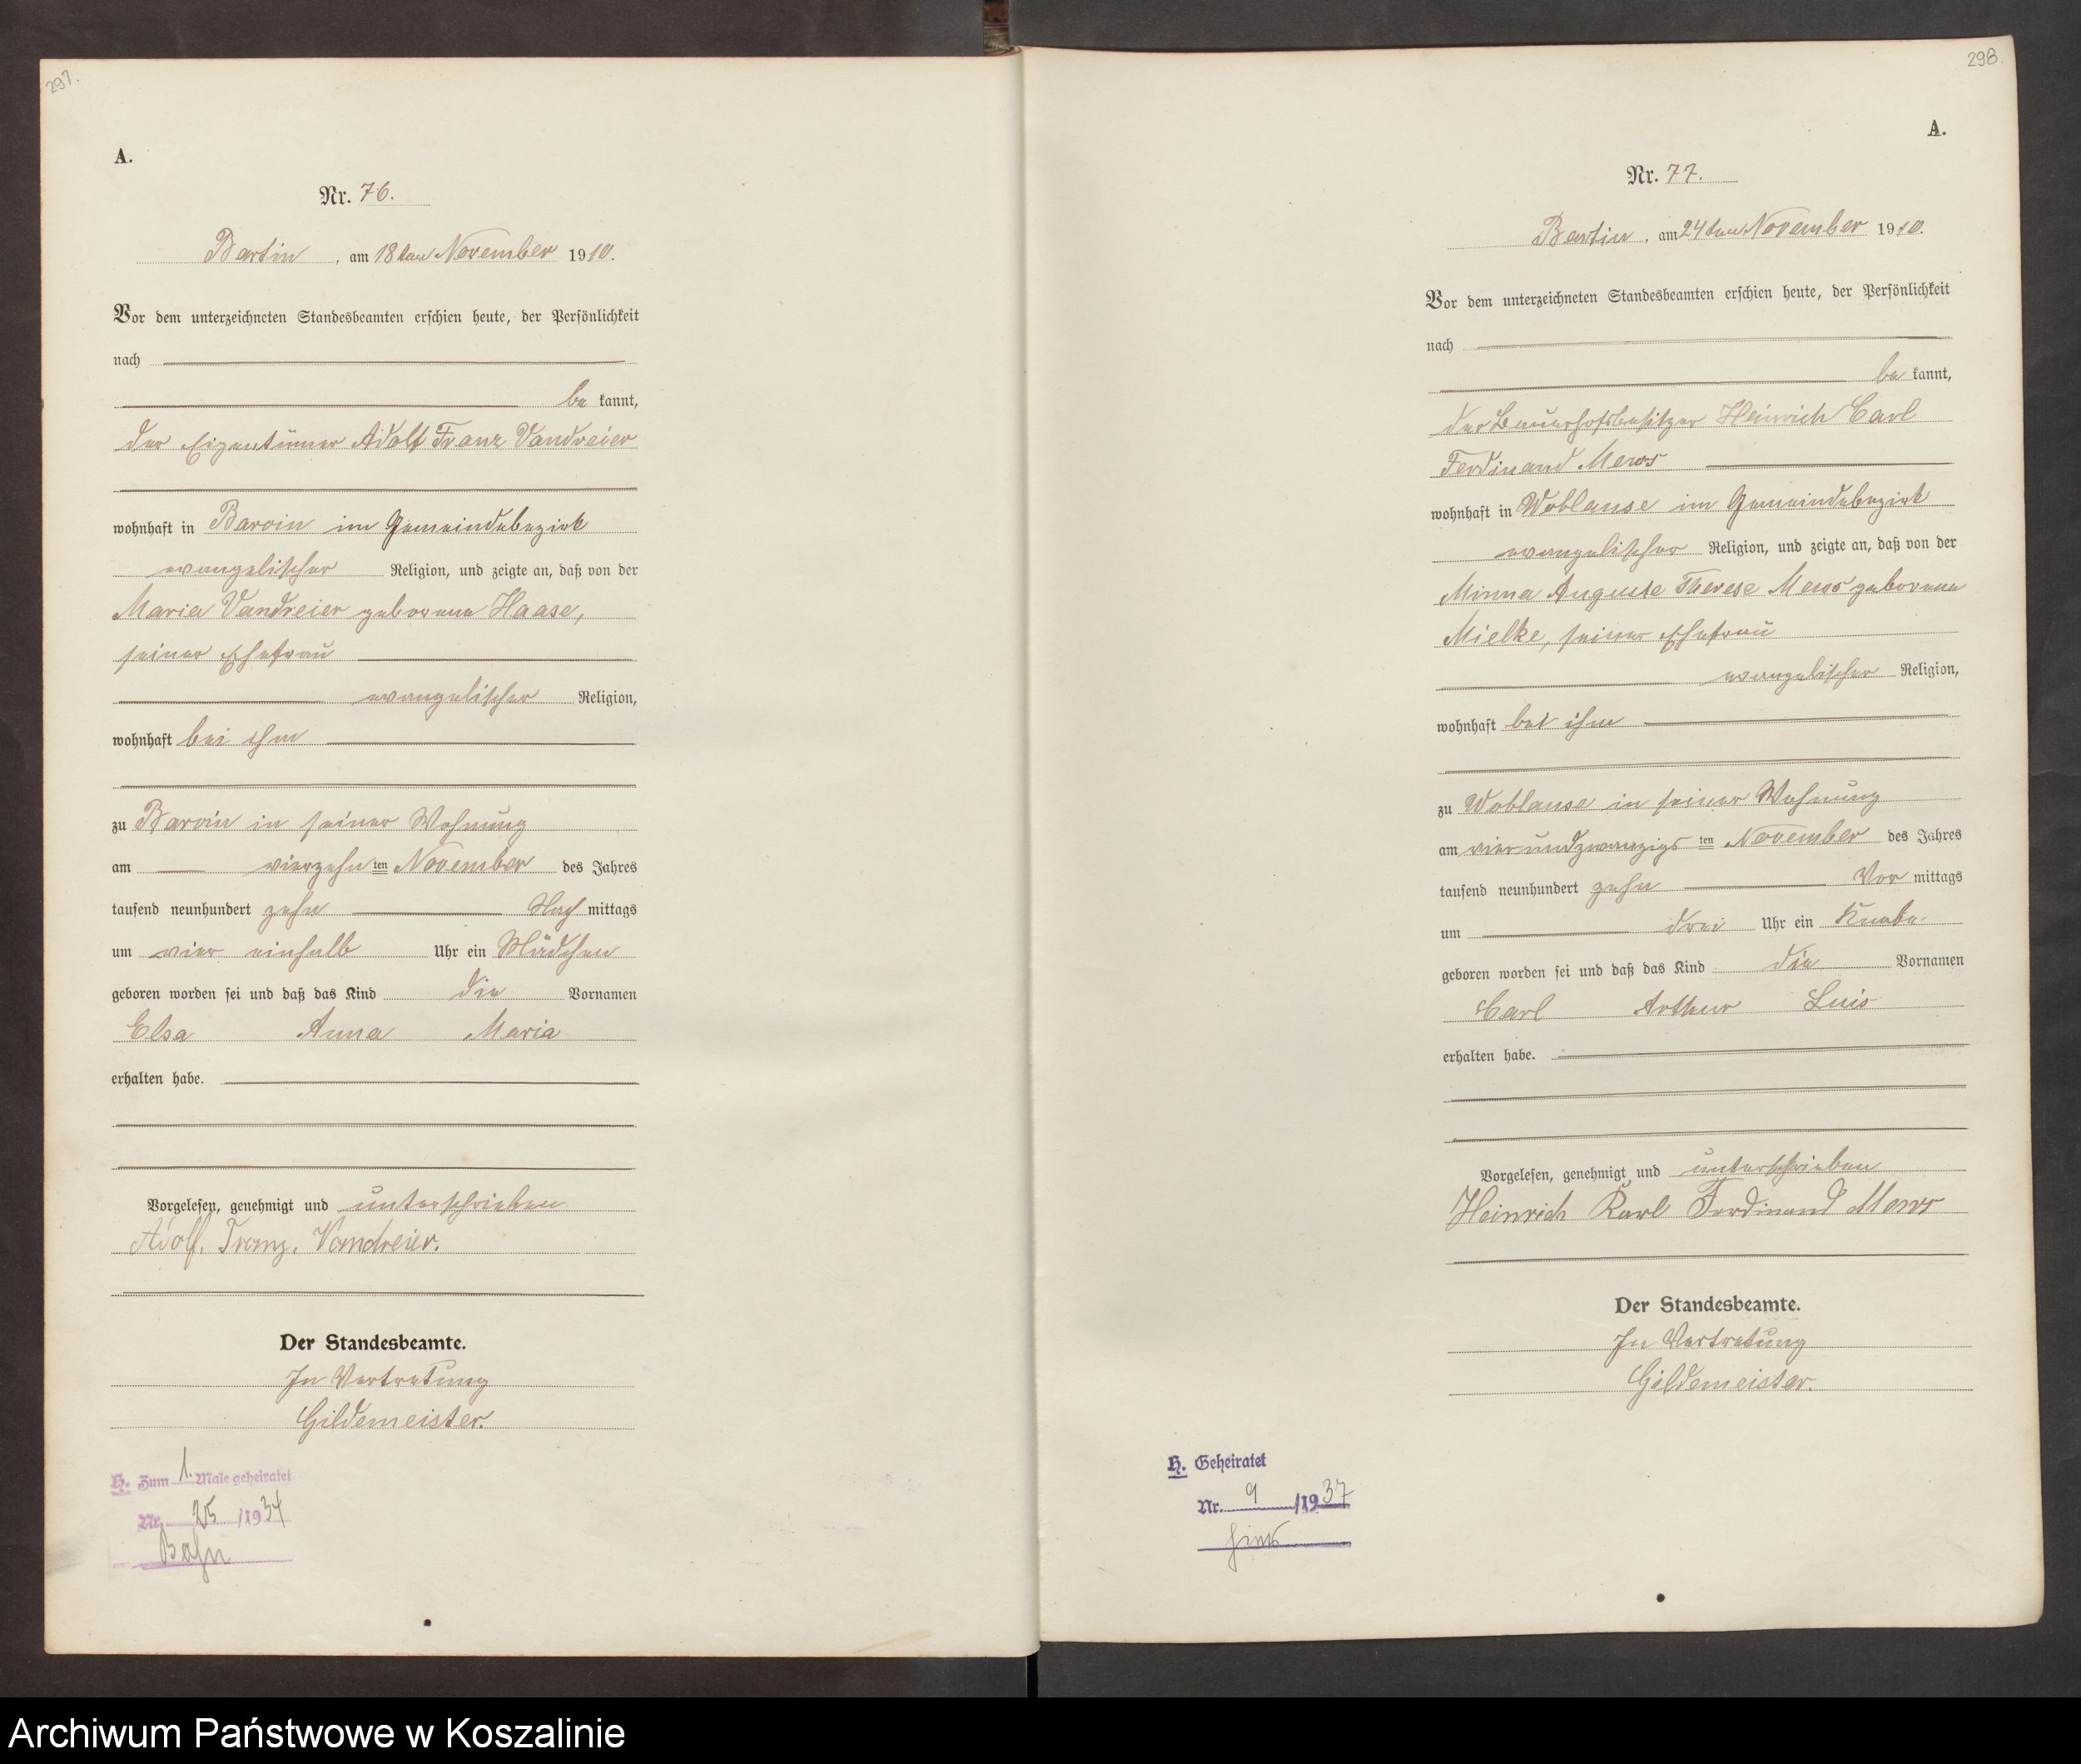 297.
A.
Nr. 76.
Bartin, am 18ten November 1910.
Vor dem unterzeichneten Standesbeamten erschien heute, der Persönlichkeit
nach
be kannt,
der Eigentümer Adolf Franz Vandreier
wohnhaft in Barvin im Gemeindebezirk
evangelischer Religion, und zeigte an, daß von der
Maria Vandreier geborene Haase,
seiner Ehefrau
evangelischer Religion,
wohnhaft bei ihm
zu Barvin in seiner Wohnung
am vierzehn ten November des Jahres
tausend neunhundert zehn Nach mittags
um vier einhalb Uhr ein Mädchen
geboren worden sei und daß das Kind die Vornamen
Elsa Anna Maria
erhalten habe.
Vorgelesen, genehmigt und unterschrieben
Adolf. Franz. Vandreier.
Der Standesbeamte.
In Vertretung
Gildemeister.
H. Zum 1. Male geheiratet
Nr. 25 /1934
Bahn
298.
A.
Nr. 77.
Bartin, am 24ten November 1910.
Vor dem unterzeichneten Standesbeamten erschien heute, der Persönlichkeit
nach
be kannt,
der Bauerhofsbesitzer Heinrich Carl
Ferdinand Mews
wohnhaft in Woblanse im Gemeindebezirk
evangelischer Religion, und zeigte an, daß von der
Minna Auguste Therese Mews geborene
Mielke, seiner Ehefrau
evangelischer Religion,
wohnhaft bei ihm
zu Woblanse in seiner Wohnung
am vierundzwanzigs ten November des Jahres
tausend neunhundert zehn Vor mittags
um drei Uhr ein Knabe
geboren worden sei und daß das Kind die Vornamen
Carl Arthur Luis
erhalten habe.
Vorgelesen, genehmigt und unterschrieben
Heinrich Karl Ferdinand Mews
Der Standesbeamte.
In Vertretung
Gildemeister.
H. Geheiratet
Nr. 9 /1937
Archiwum Państwowe w Koszalinie